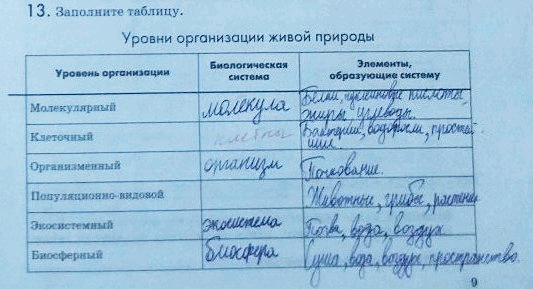 13. Заполните таблицу.
Уровни организации живой природы
Уровень организации Биологическая система Элементы, образующие систему
Молекулярный молекула Белки, нуклеиновые кислоты, жиры углеводы.
Клеточный клетки Бактерии, водоросли, простейшие.
Организменный организм Почкование.
Популяционно-видовой Животные, грибы, растения
Экосистемный экосистема Почва, вода, воздух
Биосферный биосфера Суша, вода, воздух, пространство.
9